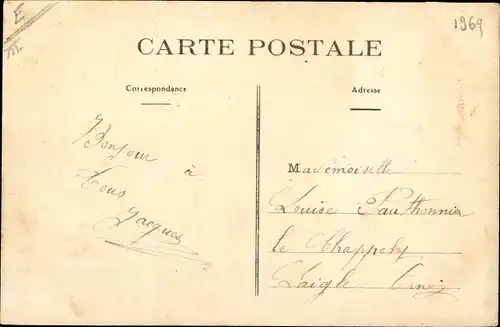 E
III
1969
CARTE POSTALE
Correspondance
Adresse
Bonjour
à
Tous
Jacques
Mademoiselle
Louise
le Chappely
Laigle Orne